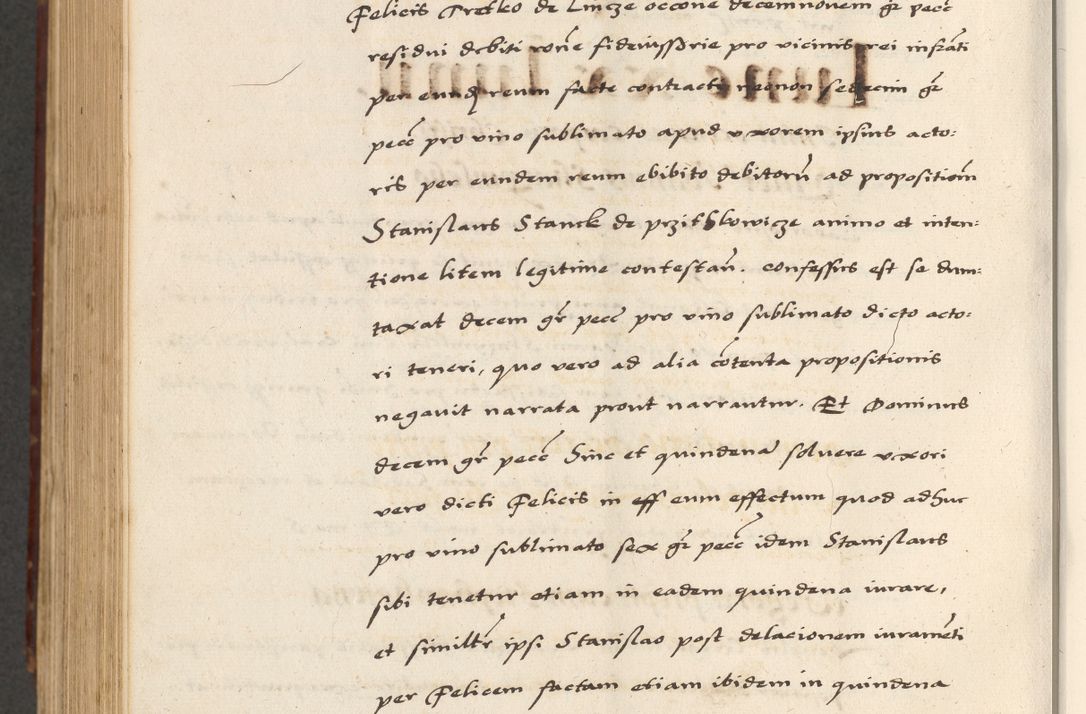 Felicis Pretko de Lincze occone decemnovem gr pecc
residui debiti rone fideiussorie pro vicinis rei infrati
per eund reum facte contracti necnon sedecim gr
pecc pro vino sublimato apud uxorem ipsius acto:
ris per eundem reum ebibito debitoru ad propositiom
Stanislaus Stanek de przithkowicze animo et inten:
tione litem legitime contestan. confessus est se dum:
taxat decem gr pecc pro vino sublimato dicto acto:
ri teneri, quo vero ad alia cotenta propositionis
negavit narrata prout narrantur. Et Dominus
decem gr pecc hinc et quindena solvere uxori
vero dicti Felicis in eff eum effectum quod adhuc
pro vino sublimato sex gr pecc idem Stanislaus
sibi tenetur etiam in eadem quindena iurare,
et similtr ipsi Stanislao post delacionem iurameti
per Felicem factam etiam ibidem in quindena